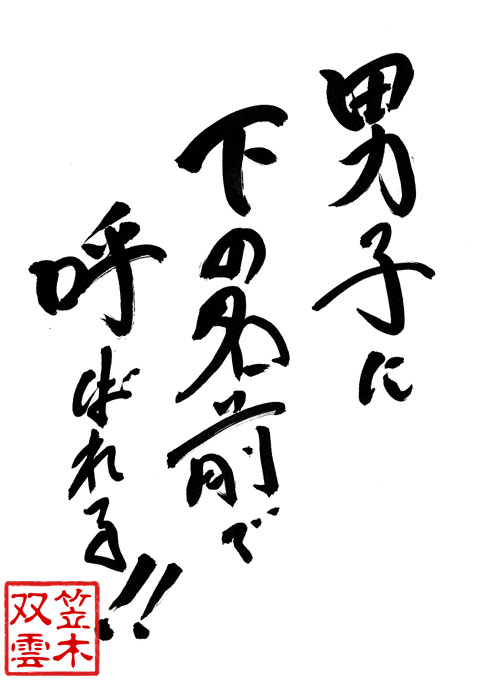 男子に
下の名前で
呼ばれる!!
笠木
双雲